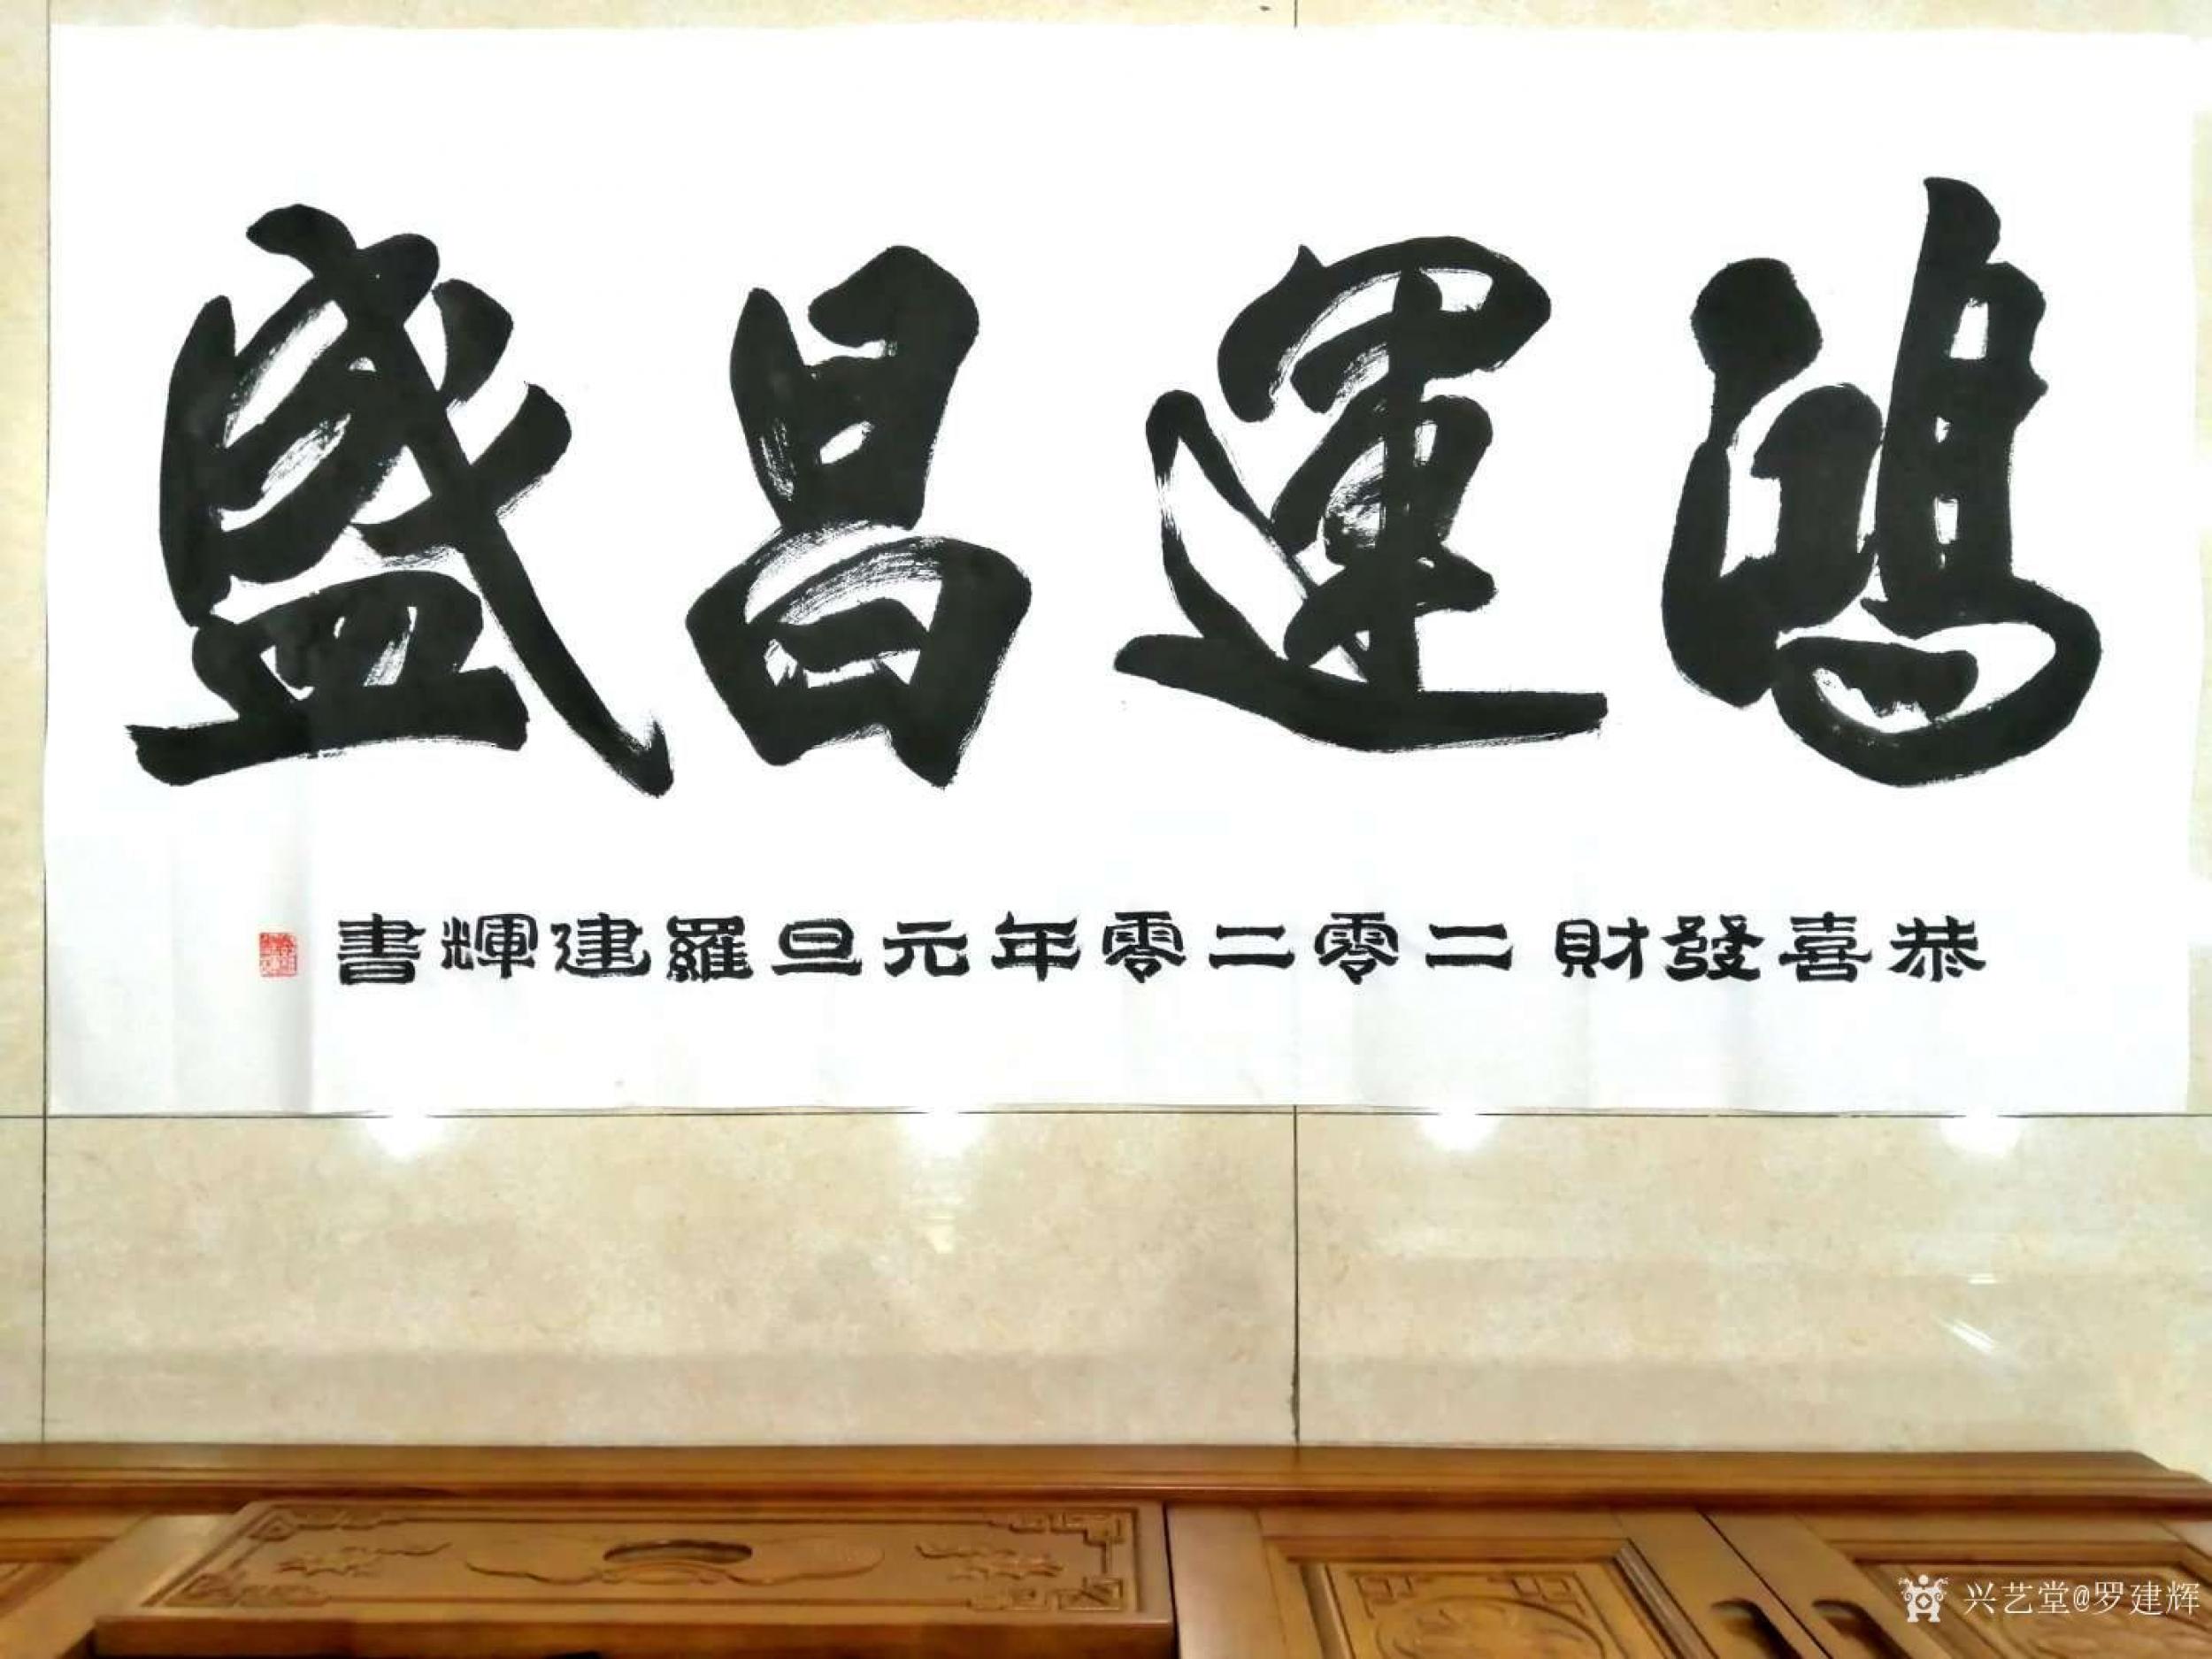 鴻運昌盛
恭喜發財 二零二零年元旦羅建輝書
兴艺堂@罗建辉